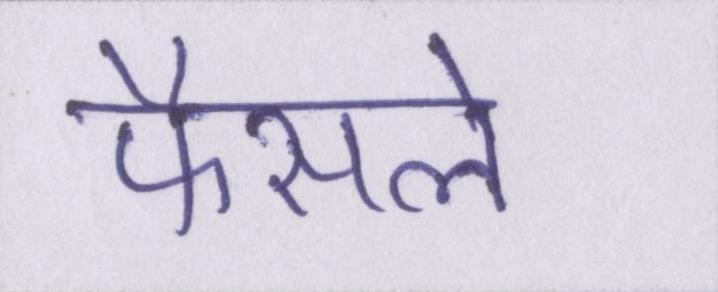 फैसले